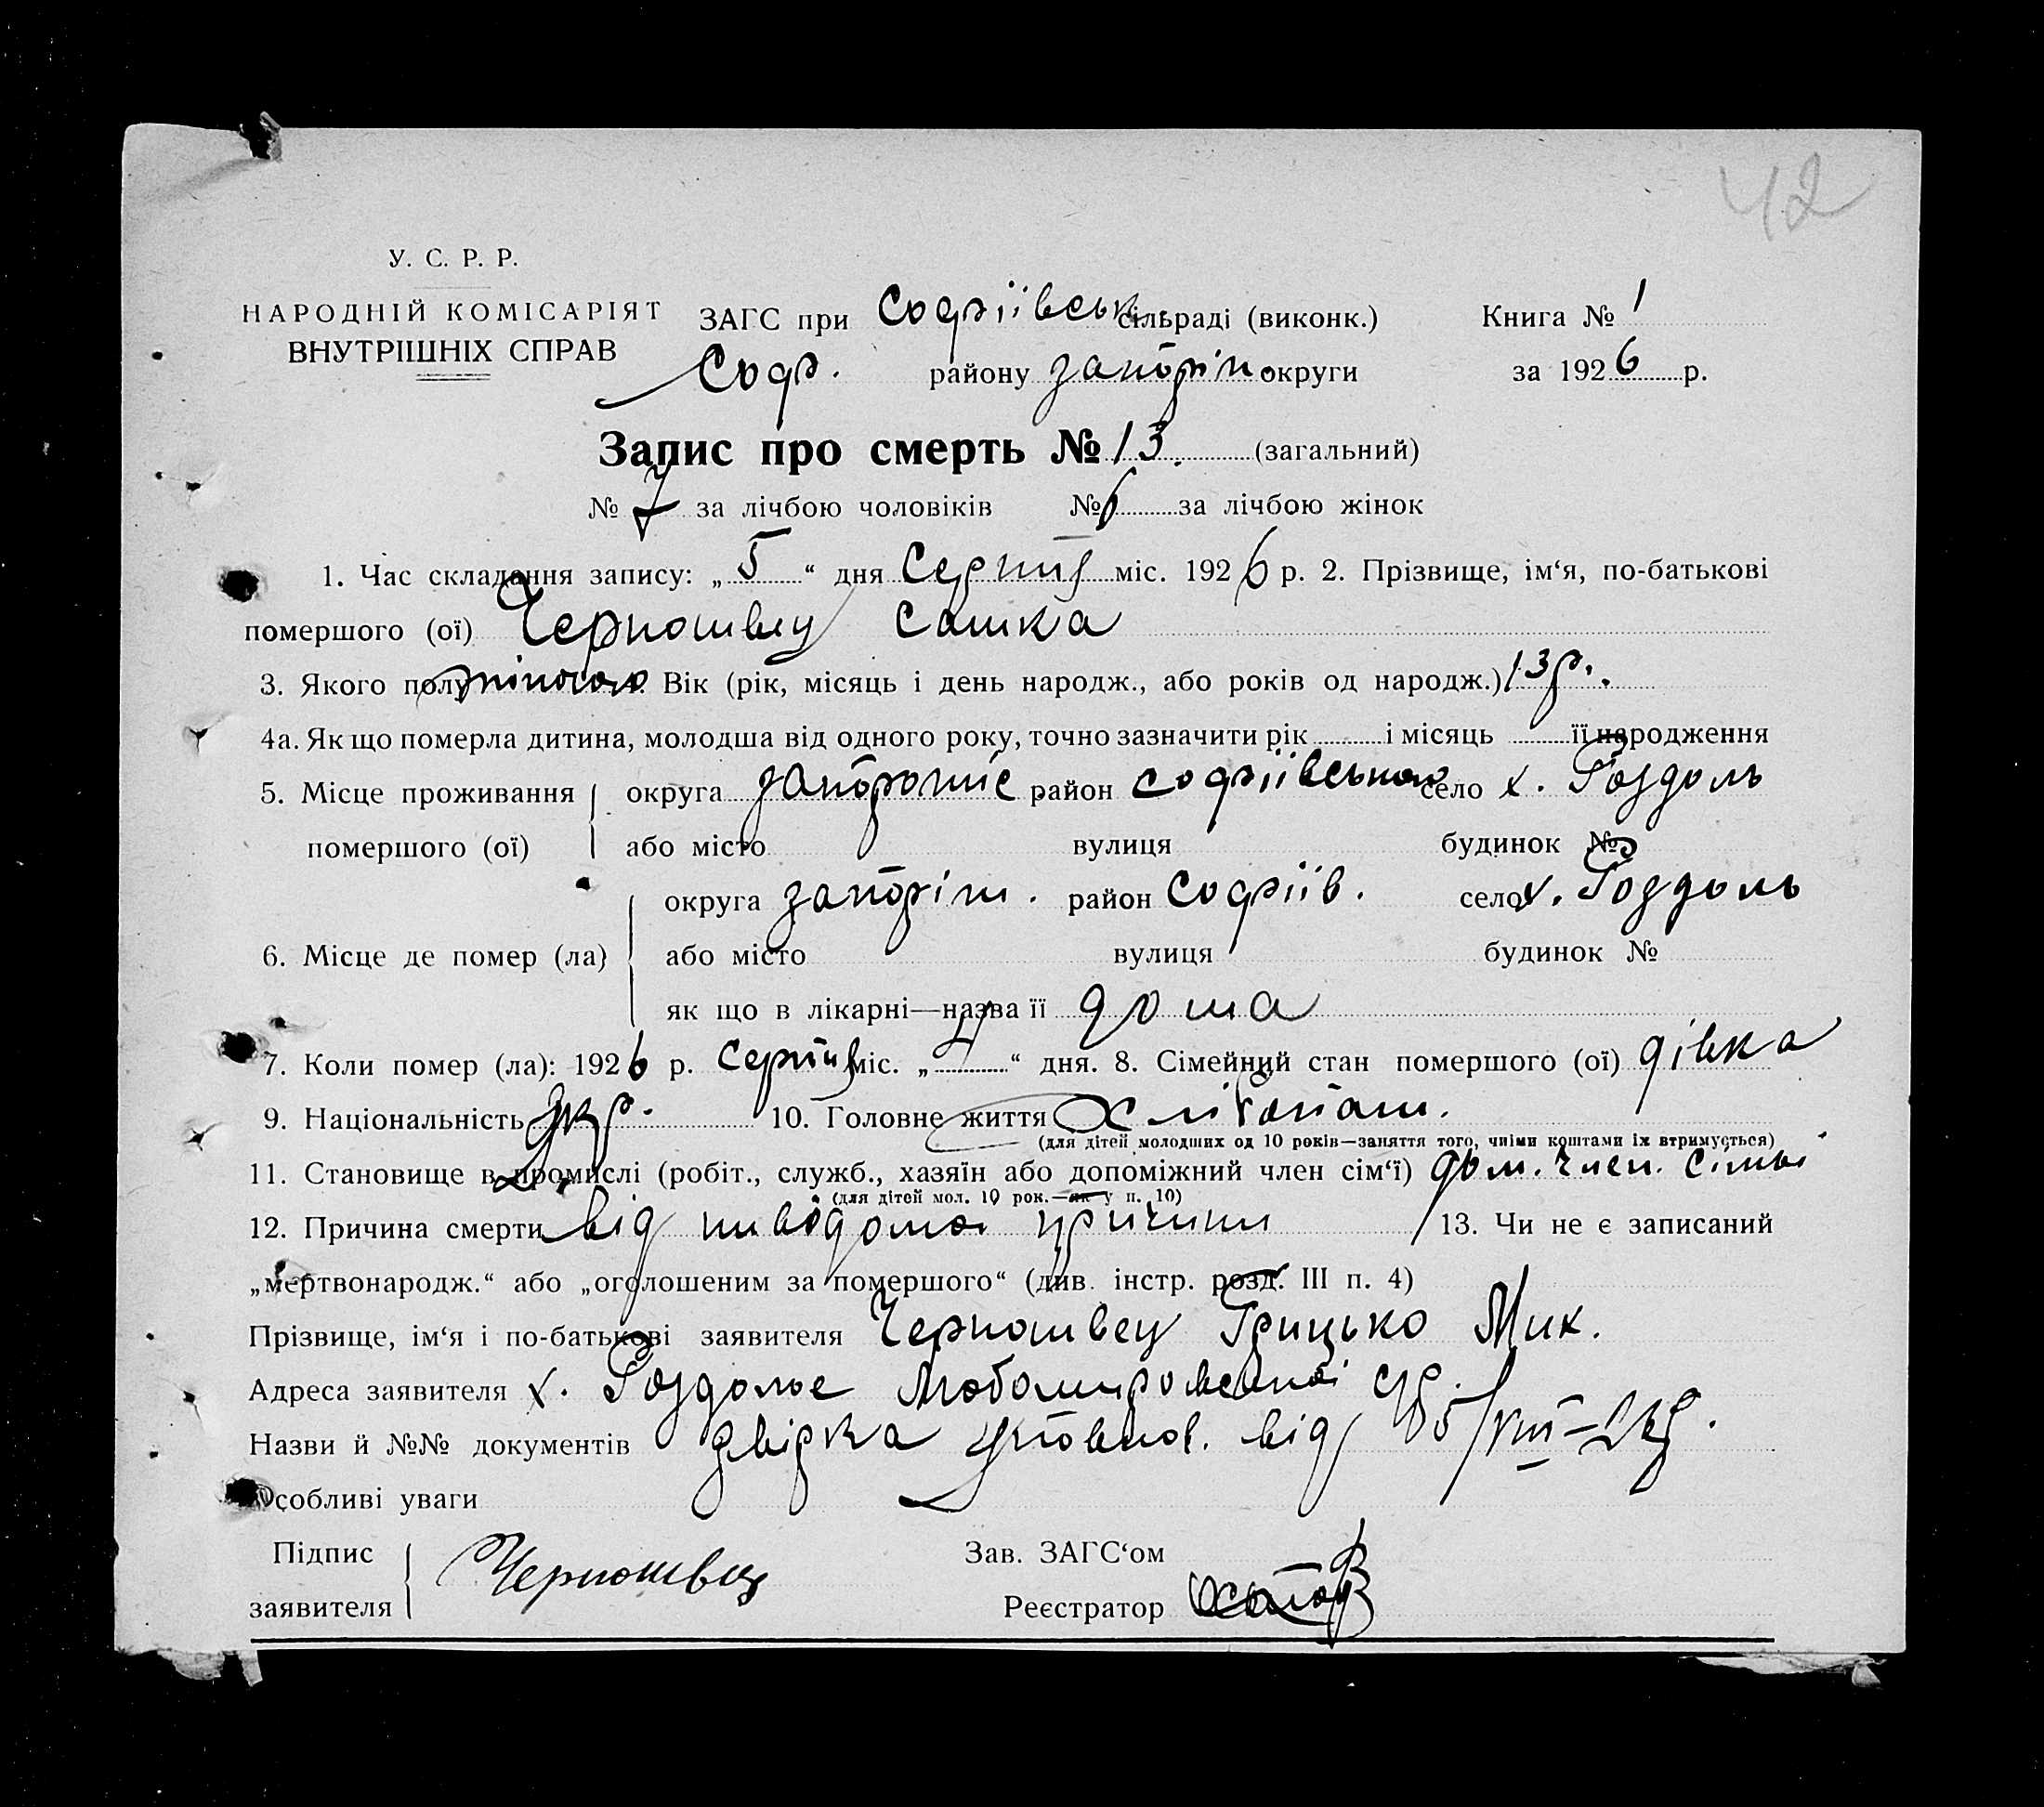 42
У. С. Р. Р.
НАРОДНІЙ КОМІСАРІЯТ
ВНУТРІШНІХ СПРАВ
ЗАГС при Софіївськ. сільраді (виконк.) Книга № 1
Соф. району Запоріж. округи за 1926 р.
Запис про смерть № 13. (загальний)
№ 7 за лічбою чоловіків № 6 за лічбою жінок
1. Час складання запису: „5“ дня Серпня міс. 1926 р. 2. Прізвище, ім‘я, по-батькові
помершого (ої) Черношвец Сашка
3. Якого полу жіночого Вік (рік, місяць і день народж., або років од народж.) 13 р.
4а. Як що померла дитина, молодша від одного року, точно зазначити рік і місяць її народження
5. Місце проживання округа Запорожіє район Софіївського село х. Роздоль
помершого (ої) або місто вулиця будинок №
округа Запоріж. район Софіїв. село х. Роздоль
6. Місце де помер (ла) або місто вулиця будинок №
як що в лікарні—назва її дома
7. Коли помер (ла): 1926 р. Серпня міс. „4“ дня. 8. Сімейний стан помершого (ої) дівка
9. Національність Укр. 10. Головне життя Хлібопаш.
(для дітей молодших од 10 років—заняття того, чиїми коштами їх втримується)
11. Становище в промислі (робіт., служб., хазяїн або допоміжний член сім‘ї) дом. член. сімьї
(для дітей мол. 10 рок.—як у п. 10)
12. Причина смерти від ниводомой причини 13. Чи не є записаний
„мертвонародж.“ або „оголошеним за помершого“ (див. інстр. розд. III п. 4)
Прізвище, ім‘я і по-батькові заявителя Черношвец Грицько Мих.
Адреса заявителя х. Роздолье Любомировської с/р.
Назви й №№ документів довірка уповнов. від 5/VIII-26 р.
Особливі уваги
Підпис Зав. ЗАГС‘ом
заявителя Черношвец Реєстратор